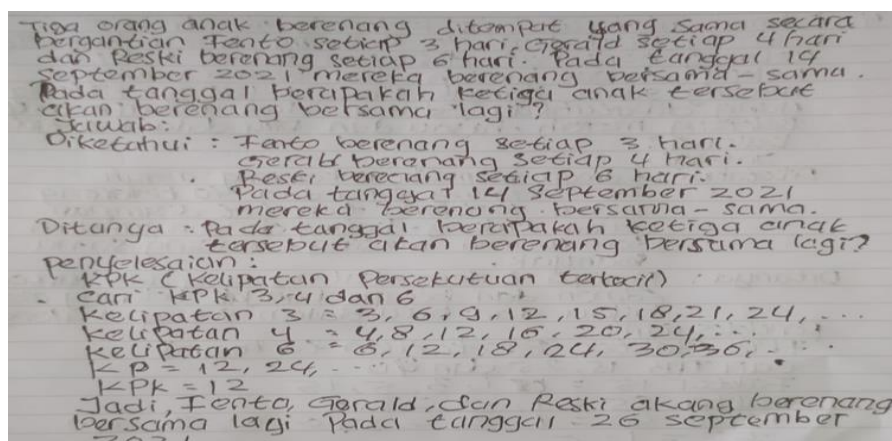 Tiga orang anak berenang ditempat yang sama secara
bergantian Fento setiap 3 hari, Gerald setiap 4 hari
dan Reski berenang setiap 6 hari. Pada tanggal 14
September 2021 mereka berenang bersama-sama.
Pada tanggal berapakah ketiga anak tersebut
akan berenang bersama lagi?
Jawab:
Diketahui : Fento berenang setiap 3 hari.
Gerald berenang setiap 4 hari.
Reski berenang setiap 6 hari.
Pada tanggal 14 September 2021
mereka berenang bersama-sama.
Ditanya : Pada tanggal berapakah ketiga anak
tersebut akan berenang bersama lagi?
Penyelesaian :
KPK (Kelipatan Persekutuan terkecil)
- Cari KPK 3,4 dan 6
Kelipatan 3 = 3, 6, 9, 12, 15, 18, 21, 24, ...
Kelipatan 4 = 4, 8, 12, 16, 20, 24, ...
Kelipatan 6 = 6, 12, 18, 24, 30, 36, ...
KP = 12, 24, ...
KPK = 12
Jadi, Fento, Gerald, dan Reski akang berenang
bersama lagi pada tanggal 26 September
2021